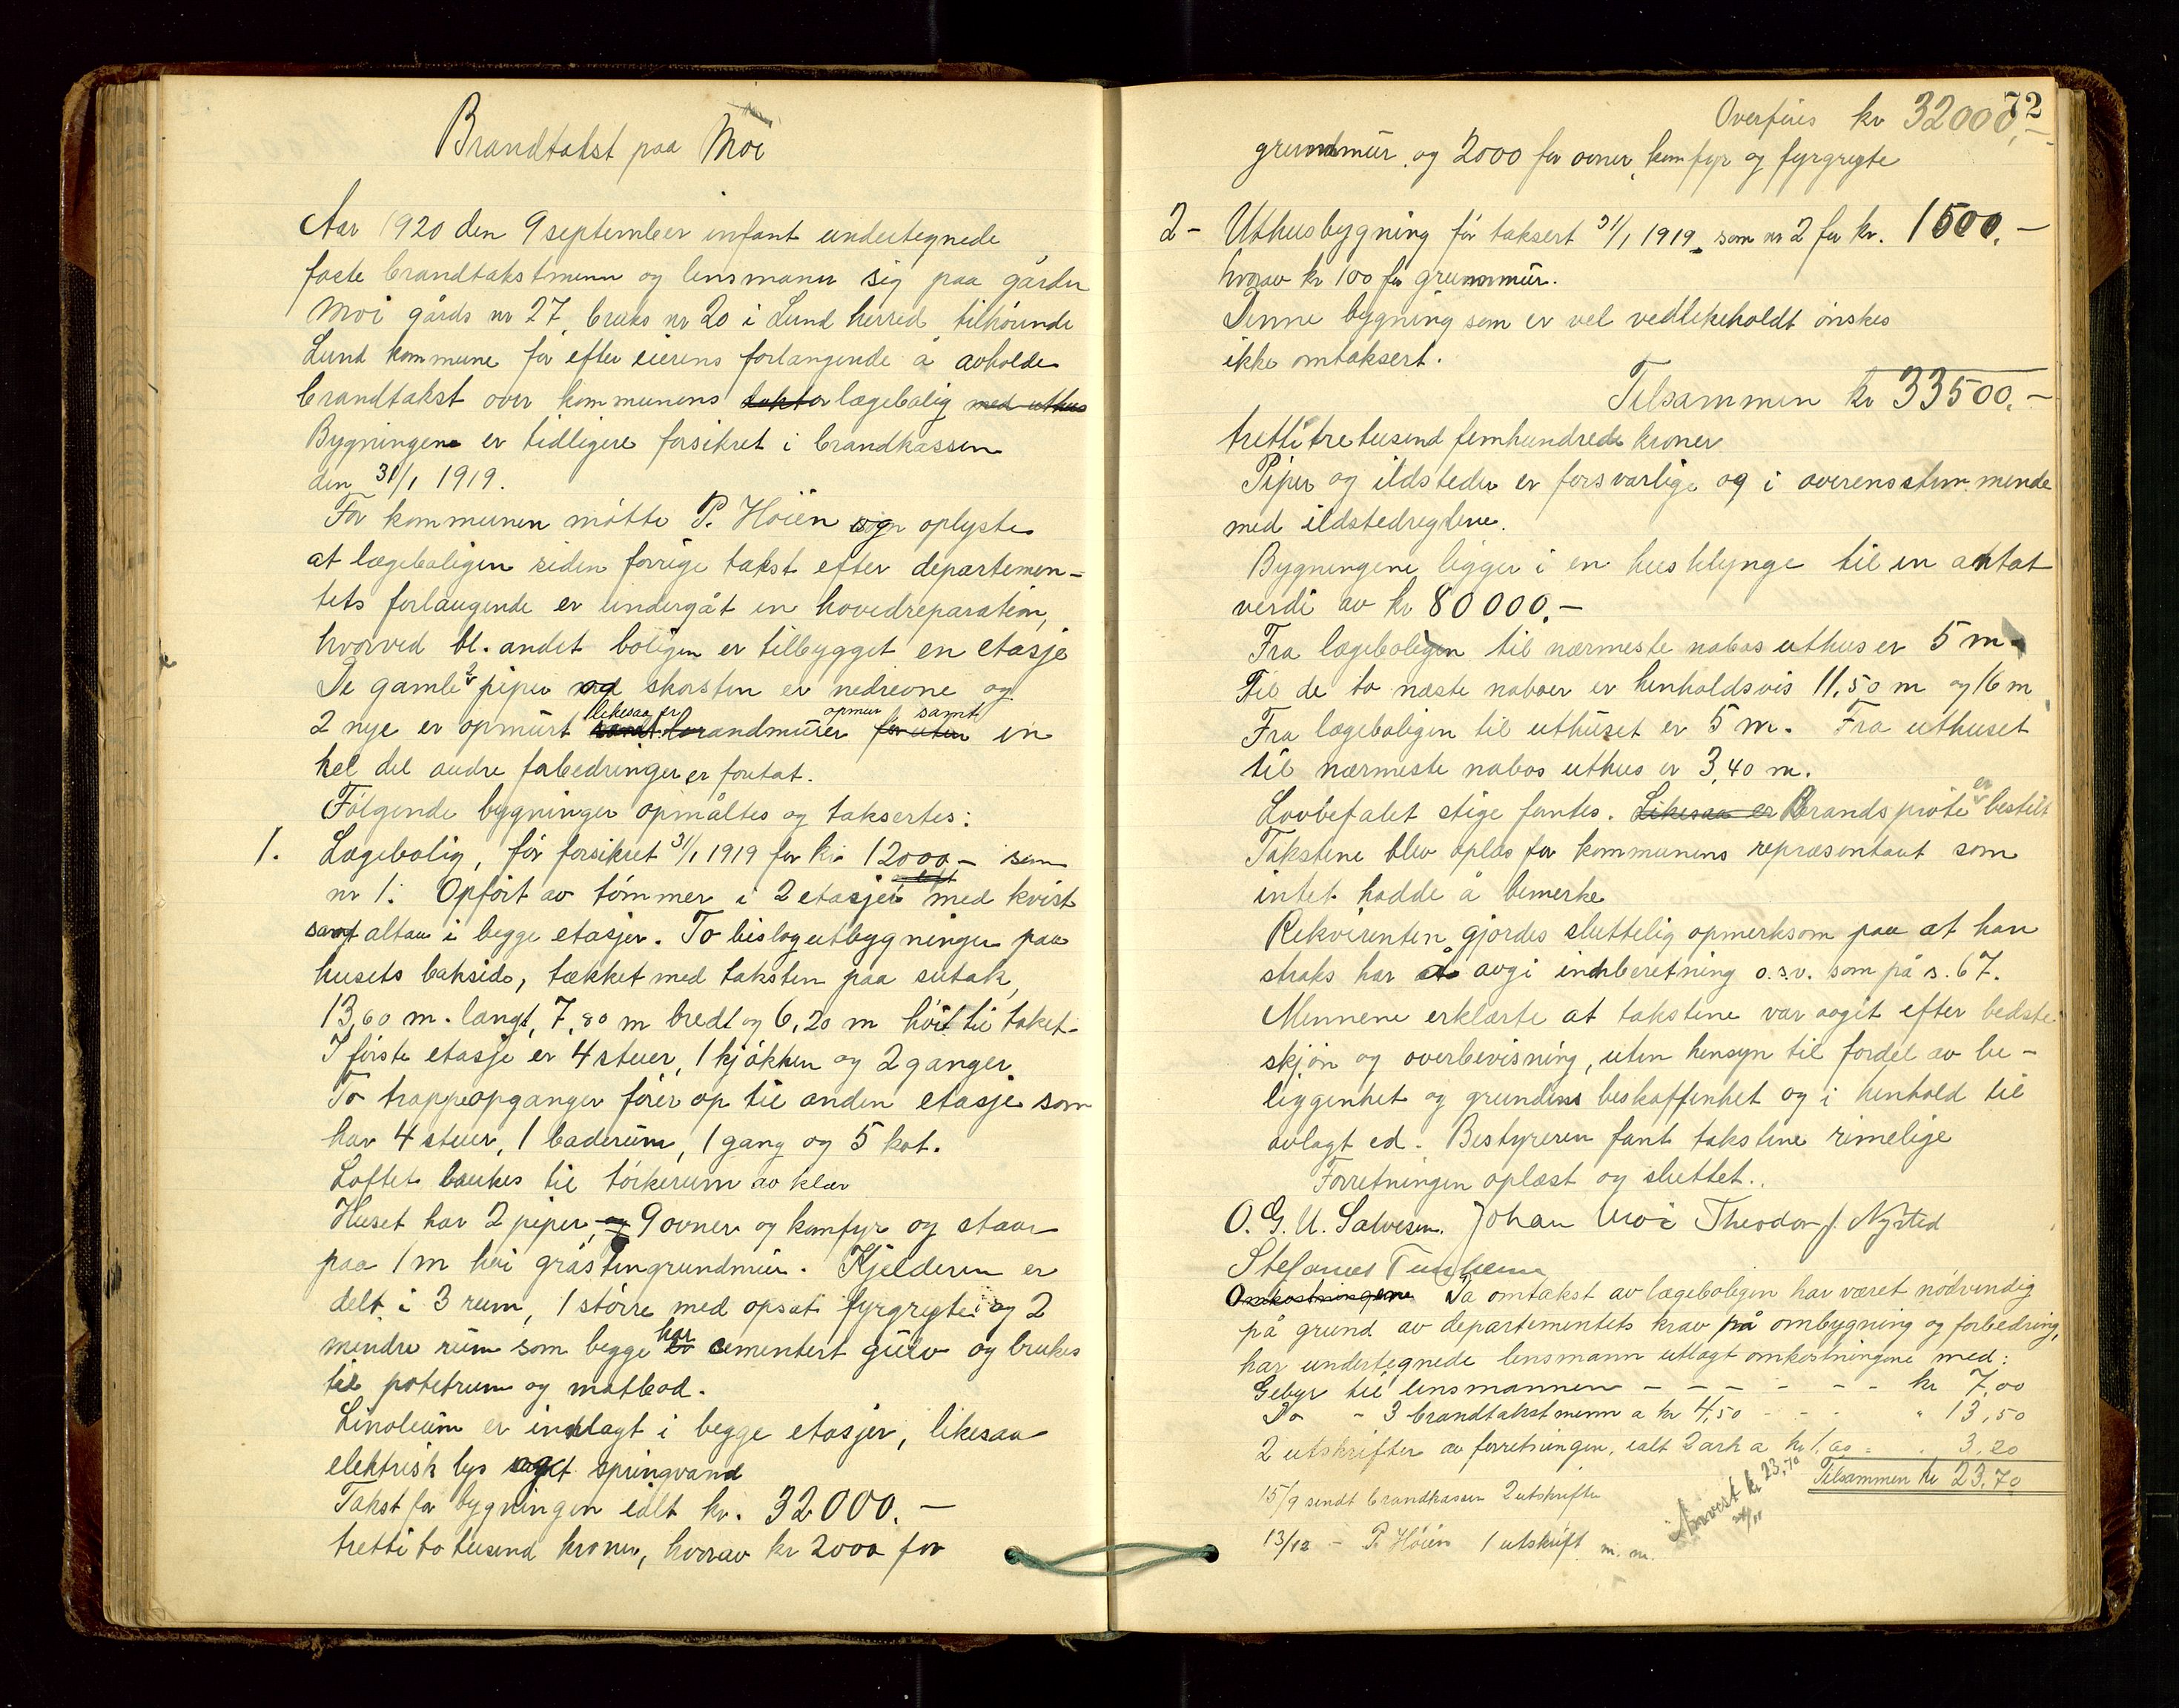 Brandtakst paa Moi
Aar 1920 den 9 september infant undertegnede
faste brandtakstmenn og lensmann sig paa gården
Moi gårds nr 27, bruks nr 20 i Lund herred tilhörende
Lund kommune for efter eierens forlangende å avholde
brandtakst over kommunens doktor lægebolig med uthus
Bygningene er tidligere forsikret i brandkassen
den 31/1 1919.
For kommunen mötte P. Höien og oplyste
at lægeboligen siden forrige takst efter departemen-
tets forlangende er undergåt en hovedreparation,
hvorved bl. andet boligen er tilbygget en etasje
De gamle 2 piper og skorsten er nedrevne og
2 nye er opmurt likesaa er brandmurer opmur samt en
hel del andre forbedringer er foretat.
Fölgende bygninger opmåltes og taksertes:
1. Lægebolig, för forsikret 31/1 1919 for kr 12000 - som
nr 1. Opfört av tömmer i 2 etasjer med kvist
samt altan i begge etasjer. To bislagutbygninger paa
husets bakside, tækket med taksten paa sutak,
13,60 m. langt, 7,80 m bredt og 6,20 m höit til taket.
I förste etasje er 4 stuer, 1 kjökken og 2 ganger.
To trappeopganger förer op til anden etasje som
har 4 stuer, 1 baderum, 1 gang og 5 kot.
Loftet brukes til törkerum av klær
Huset har 2 piper, og 9 ovner og komfyr og staar
paa 1 m höi gråstengrundmur. Kjelderen er
delt i 3 rum, 1 större med opsat fyrgryte og 2
mindre rum som begge er har cementert gulv og brukes
til potetrum og matbod.
Linoleum er indlagt i begge etasjer, likesaa
elektrisk lys og springvand
Takst for bygningen ialt kr. 32000.-
tretti to tusend kroner, hvorav kr 2000 for
72
Overföres kr 32000,-
grundmur og 2000 for ovner, komfyr og fyrgryte
2- Uthusbygning för taksert 31/1 1919 som nr 2 for kr. 1500.-
hvorav kr 100 for grunnmur.
Denne bygning som er vel vedlikeholdt önskes
ikke omtaksert.
Tilsammen kr 33500.-
trettitretusend femhundrede kroner
Piper og ildsteder er forsvarlige og i overensstemmende
med ildstedreglene.
Bygningene ligger i en husklynge til en antat
verdi av kr 80000.-
Fra lægeboligen til nærmeste nabos uthus er 5 m.
Til de to næste naboer er henholdsvis 11,50 m og 16 m
Fra lægeboligen til uthuset er 5 m. Fra uthuset
til nærmeste nabos uthus er 3,40 m.
Lovbefalet stige fantes. Likesaa er Brandspröite er bestilt
Takstene blev oplæs for kommunens repræsentant som
intet hadde å bemerke
Rekvirenten gjordes sluttelig opmerksom paa at han
straks har å avgi indberetning o.s.v. som på s. 67.
Mennene erklærte at takstene var avgit efter bedste
skjön og overbevisning, uten hensyn til fordel av be-
liggenhet og grundens beskaffenhet og i henhold til
avlagt ed. Bestyreren fant takstene rimelige
Forretningen oplæst og sluttet.
O. G. U. Salvesen. Johan Moi Theodor J. Nysted
Omkostningene Da omtakst av lægeboligen har været nödvendig
på grund av departementets krav på ombygning og forbedring,
har undertegnede lensmann utlagt omkostningene med:
Gebyr til lensmannen - - - - - - kr 7,00
Do - 3 brandtakstmenn a kr 4,50 - - - " 13,50
2 utskrifter av forretningen, ialt 2 ark a kr 1,60 = . 3.20
Tilsammen kr 23.70
15/9 sendt brandkassen 2 utskrifter
Anvist kr 23,70
13/12 - P. Höien 1 utskrift m. m.